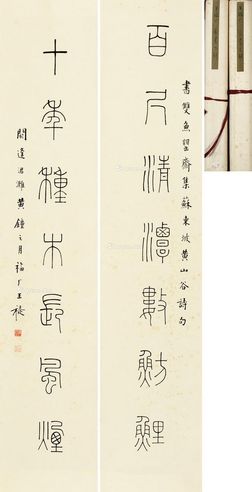 書雙魚罌齋集蘇東坡黃山谷詩句
百尺清潭數魴鯉
十年種木長風煙
閼逢涒灘黃鐘之月福厂王禔